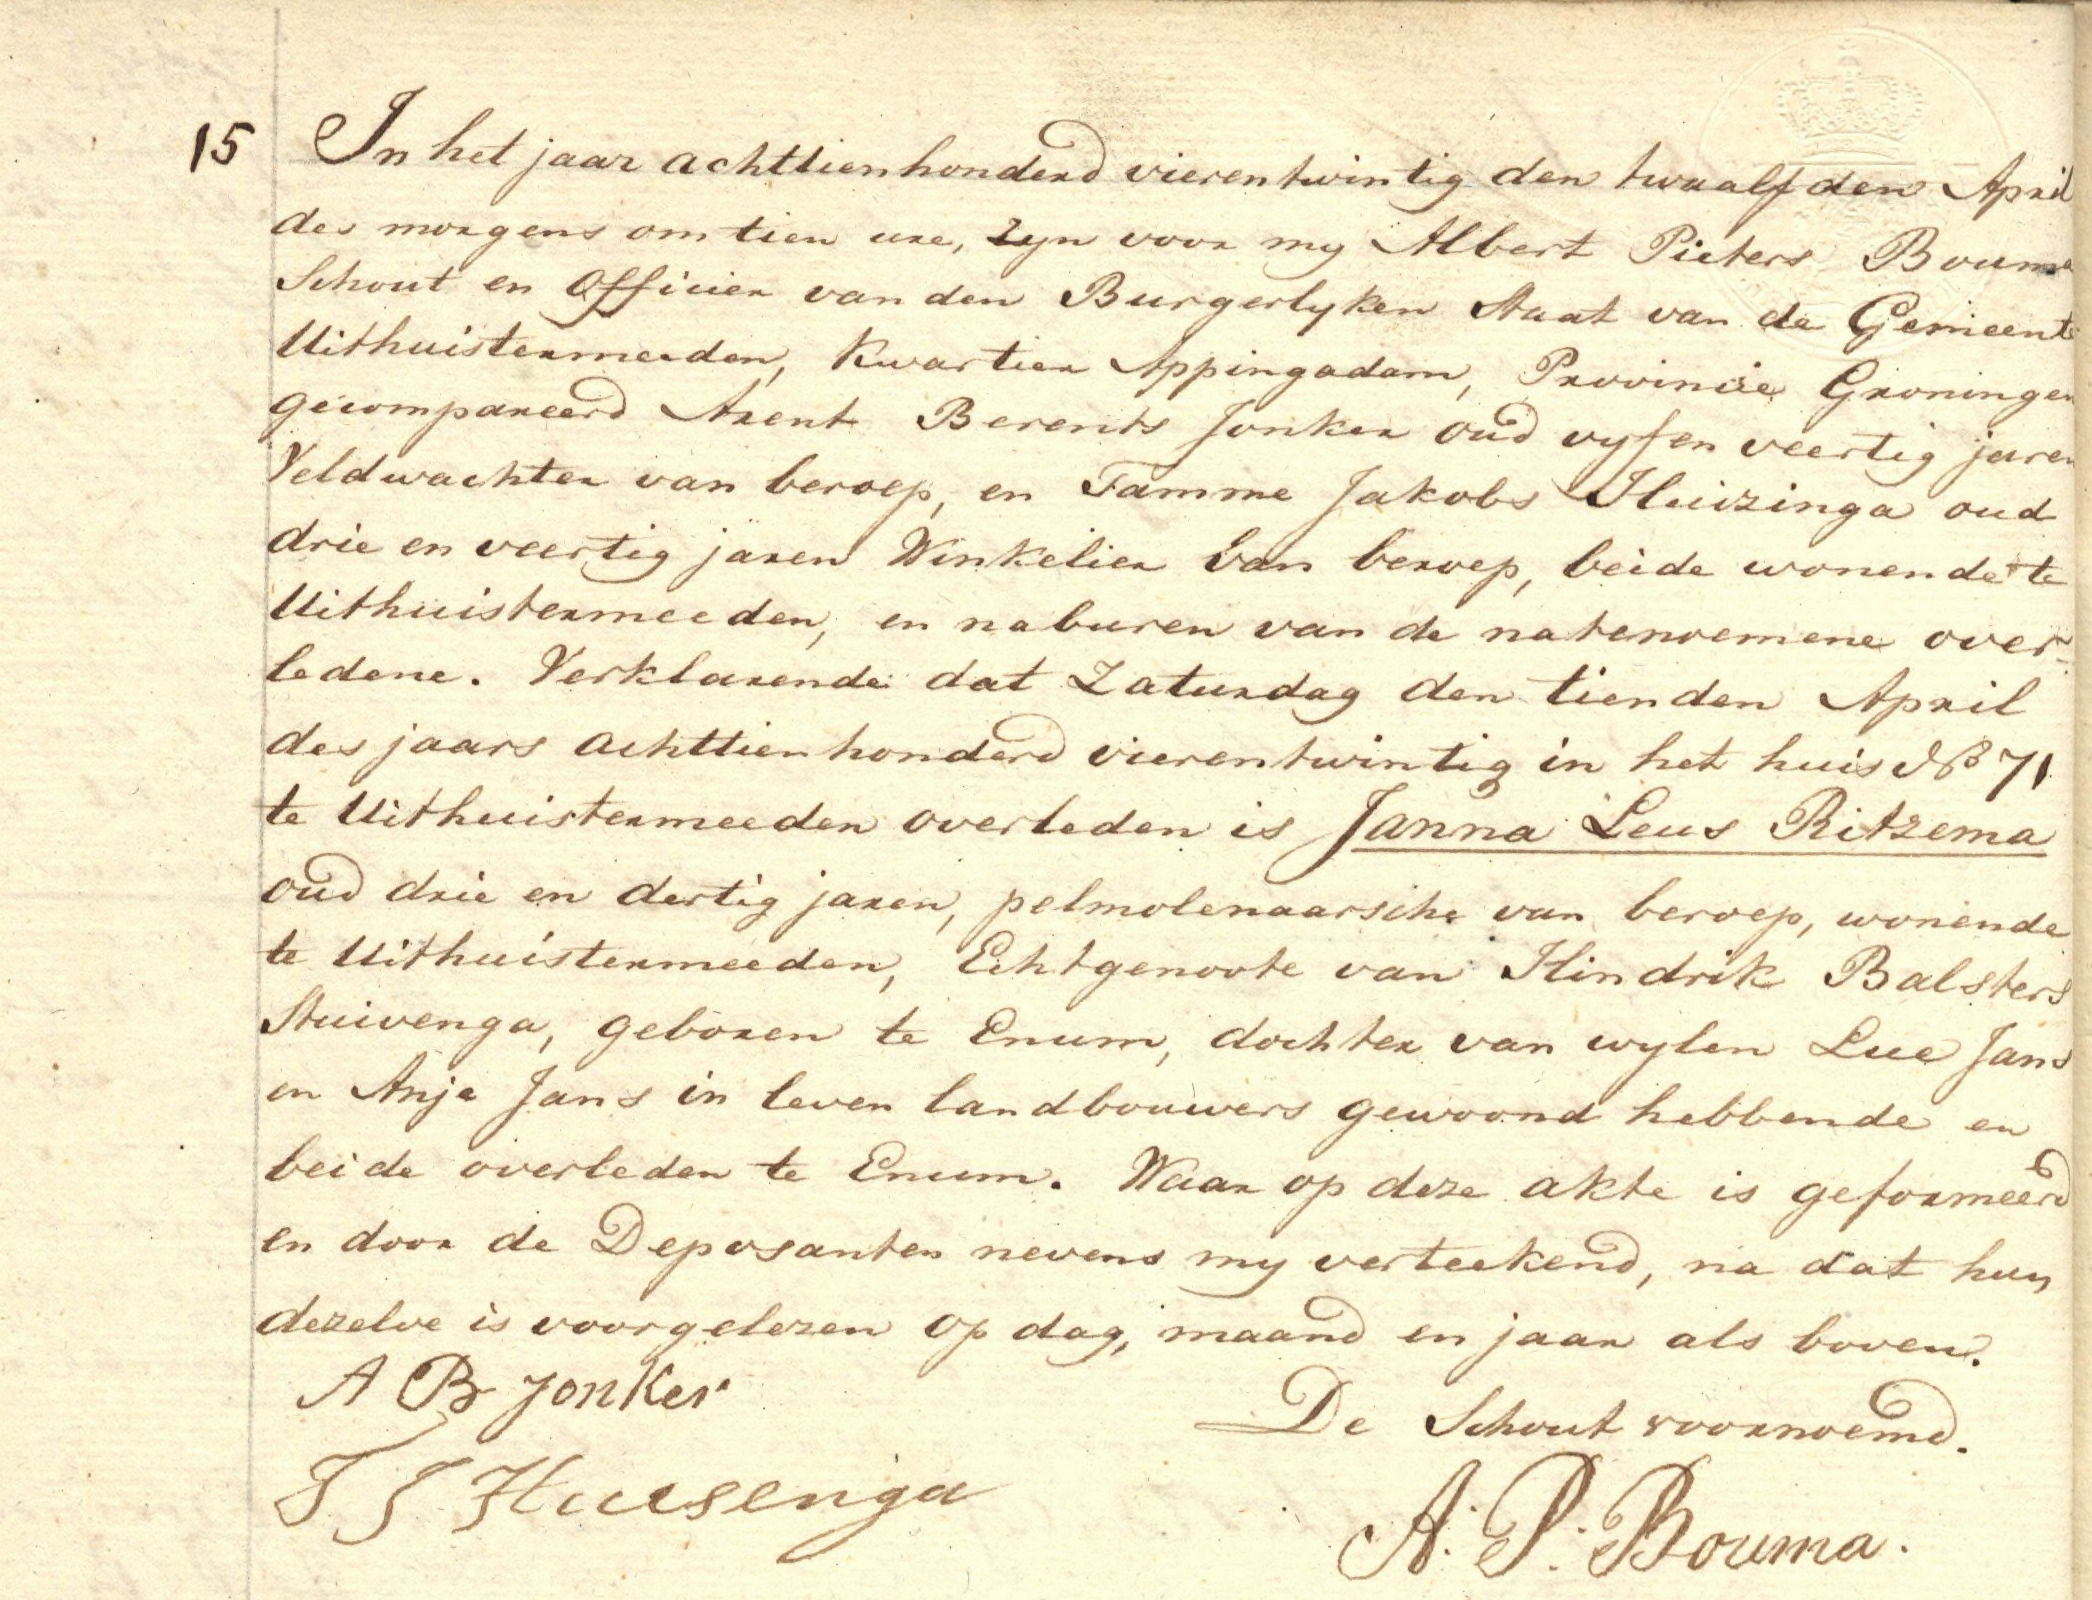 15 In het jaar achttienhonderd vierentwintig den twaalfden April
des morgens om tien ure, zyn voor my Albert Pieters Bouma
Schout en Officier van den Burgerlyken Staat van de Gemeente
Uithuistermeeden, Kwartier Appingadam, Provincie Groningen
gecompareerd Arent Berents Jonker oud vyf en veertig jaren
Veldwachter van beroep, en Tamme Jakobs Huizinga oud
drie en veertig jaren Winkelier van beroep, beide wonende te
Uithuistermeeden, en naburen van de natenoemene over-
ledene. Verklarende dat Zaturdag den tienden April
des jaars achttienhonderd vierentwintig in het huis No 71
te Uithuistermeeden overleden is Janna Leus Ritzema
oud drie en dertig jaren, pelmolenaarsche van beroep, wonende
te Uithuistermeeden, Echtgenoote van Hindrik Balsters
Stuivenga, geboren te Enum, dochter van wylen Lue Jans
en Anje Jans in leven landbouwers gewoond hebbende en
beide overleden te Enum. Waar op deze akte is geformeerd
en door de Deposanten nevens my verteekend, na dat hun
dezelve is voorgelezen op dag, maand en jaar als boven.
A B Jonker
De Schout voornoemd.
T J Huesenga
A. P. Bouma.